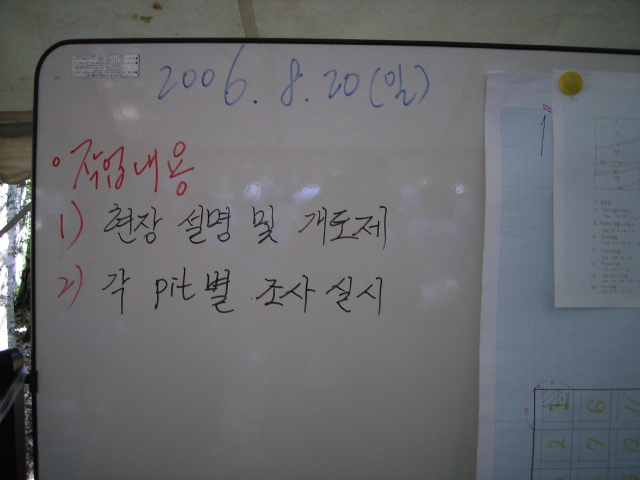 2006. 8. 20 (일)
◦ 작업내용
1) 현장 설명 및 개토제
2) 각 pit별 조사 실시
1
2 7 12
1 6 11